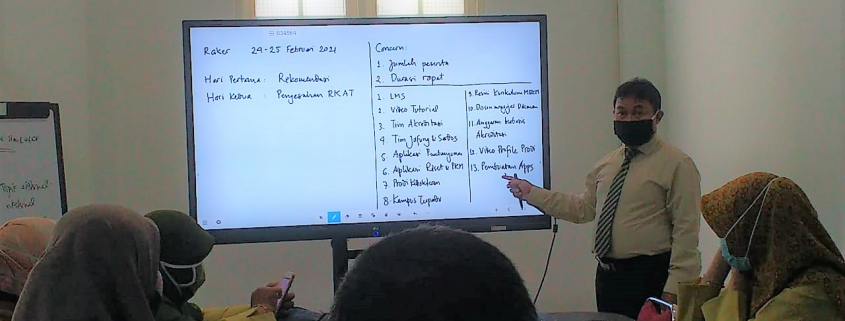 Raker 24-25 Februari 2021
Hari Pertama: Rekomendasi
Hari Kedua: Pengesahan RKAT
Concern:
1. Jumlah peserta
2. Durasi rapat
1. LMS
2. Video Tutorial
3. Tim Akreditasi
4. Tim Jafung &
5. Aplikasi
6. Aplikasi Riset & PKM
7. Prodi Kedokteran
8. Kampus Terpadu
9. Revisi Kurikulum MBKM
10. Dosen
11. Anggaran berbasis
Akreditasi
12. Video Profile Prodi
13. Pembuatan Apps